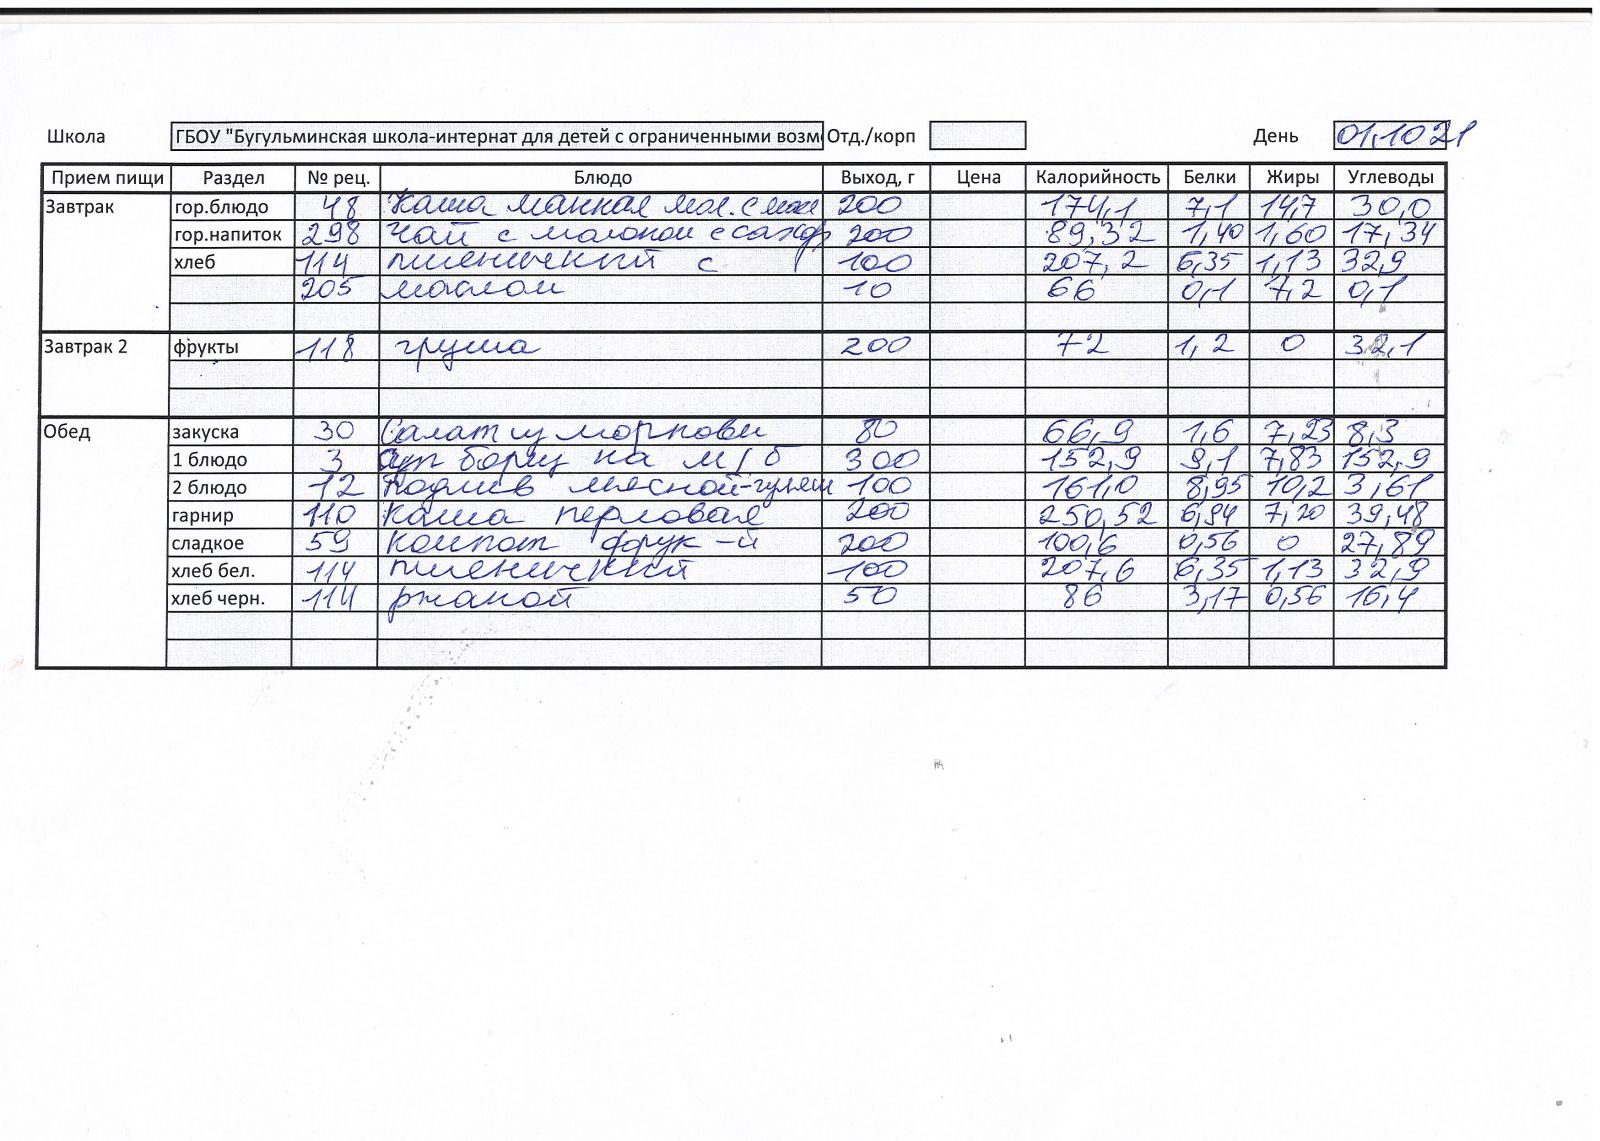 Школа ГБОУ "Бугульминская школа-интернат для детей с ограниченными возм Отд./корп День 01,10 21
Прием пищи Раздел № рец. Блюдо Выход, г Цена Калорийность Белки Жиры Углеводы
Завтрак гор.блюдо 48 Каша манная мол. с мас 200 174,1 7,1 14,7 30,0
гор.напиток 298 чай с молоком с сахар 200 89,32 1,40 1,60 17,34
хлеб 114 пшеничный с 100 207,2 6,35 1,13 32,9
205 маслом 10 66 0,1 7,2 0,1
Завтрак 2 фрукты 118 груша 200 72 1,2 0 32,1
Обед закуска 30 Салат из моркови 80 66,9 1,6 7,23 8,3
1 блюдо 3 суп борщ на м/б 300 152,9 9,1 7,83 152,9
2 блюдо 12 Подлив мясной-гуляш 100 161,0 8,95 10,2 3,61
гарнир 110 Каша перловая 200 250,52 6,94 7,20 39,48
сладкое 59 Компот фрук-й 200 100,6 0,56 0 27,89
хлеб бел. 114 пшеничный 100 207,6 6,35 1,13 32,9
хлеб черн. 114 ржаной 50 86 3,17 0,56 16,4